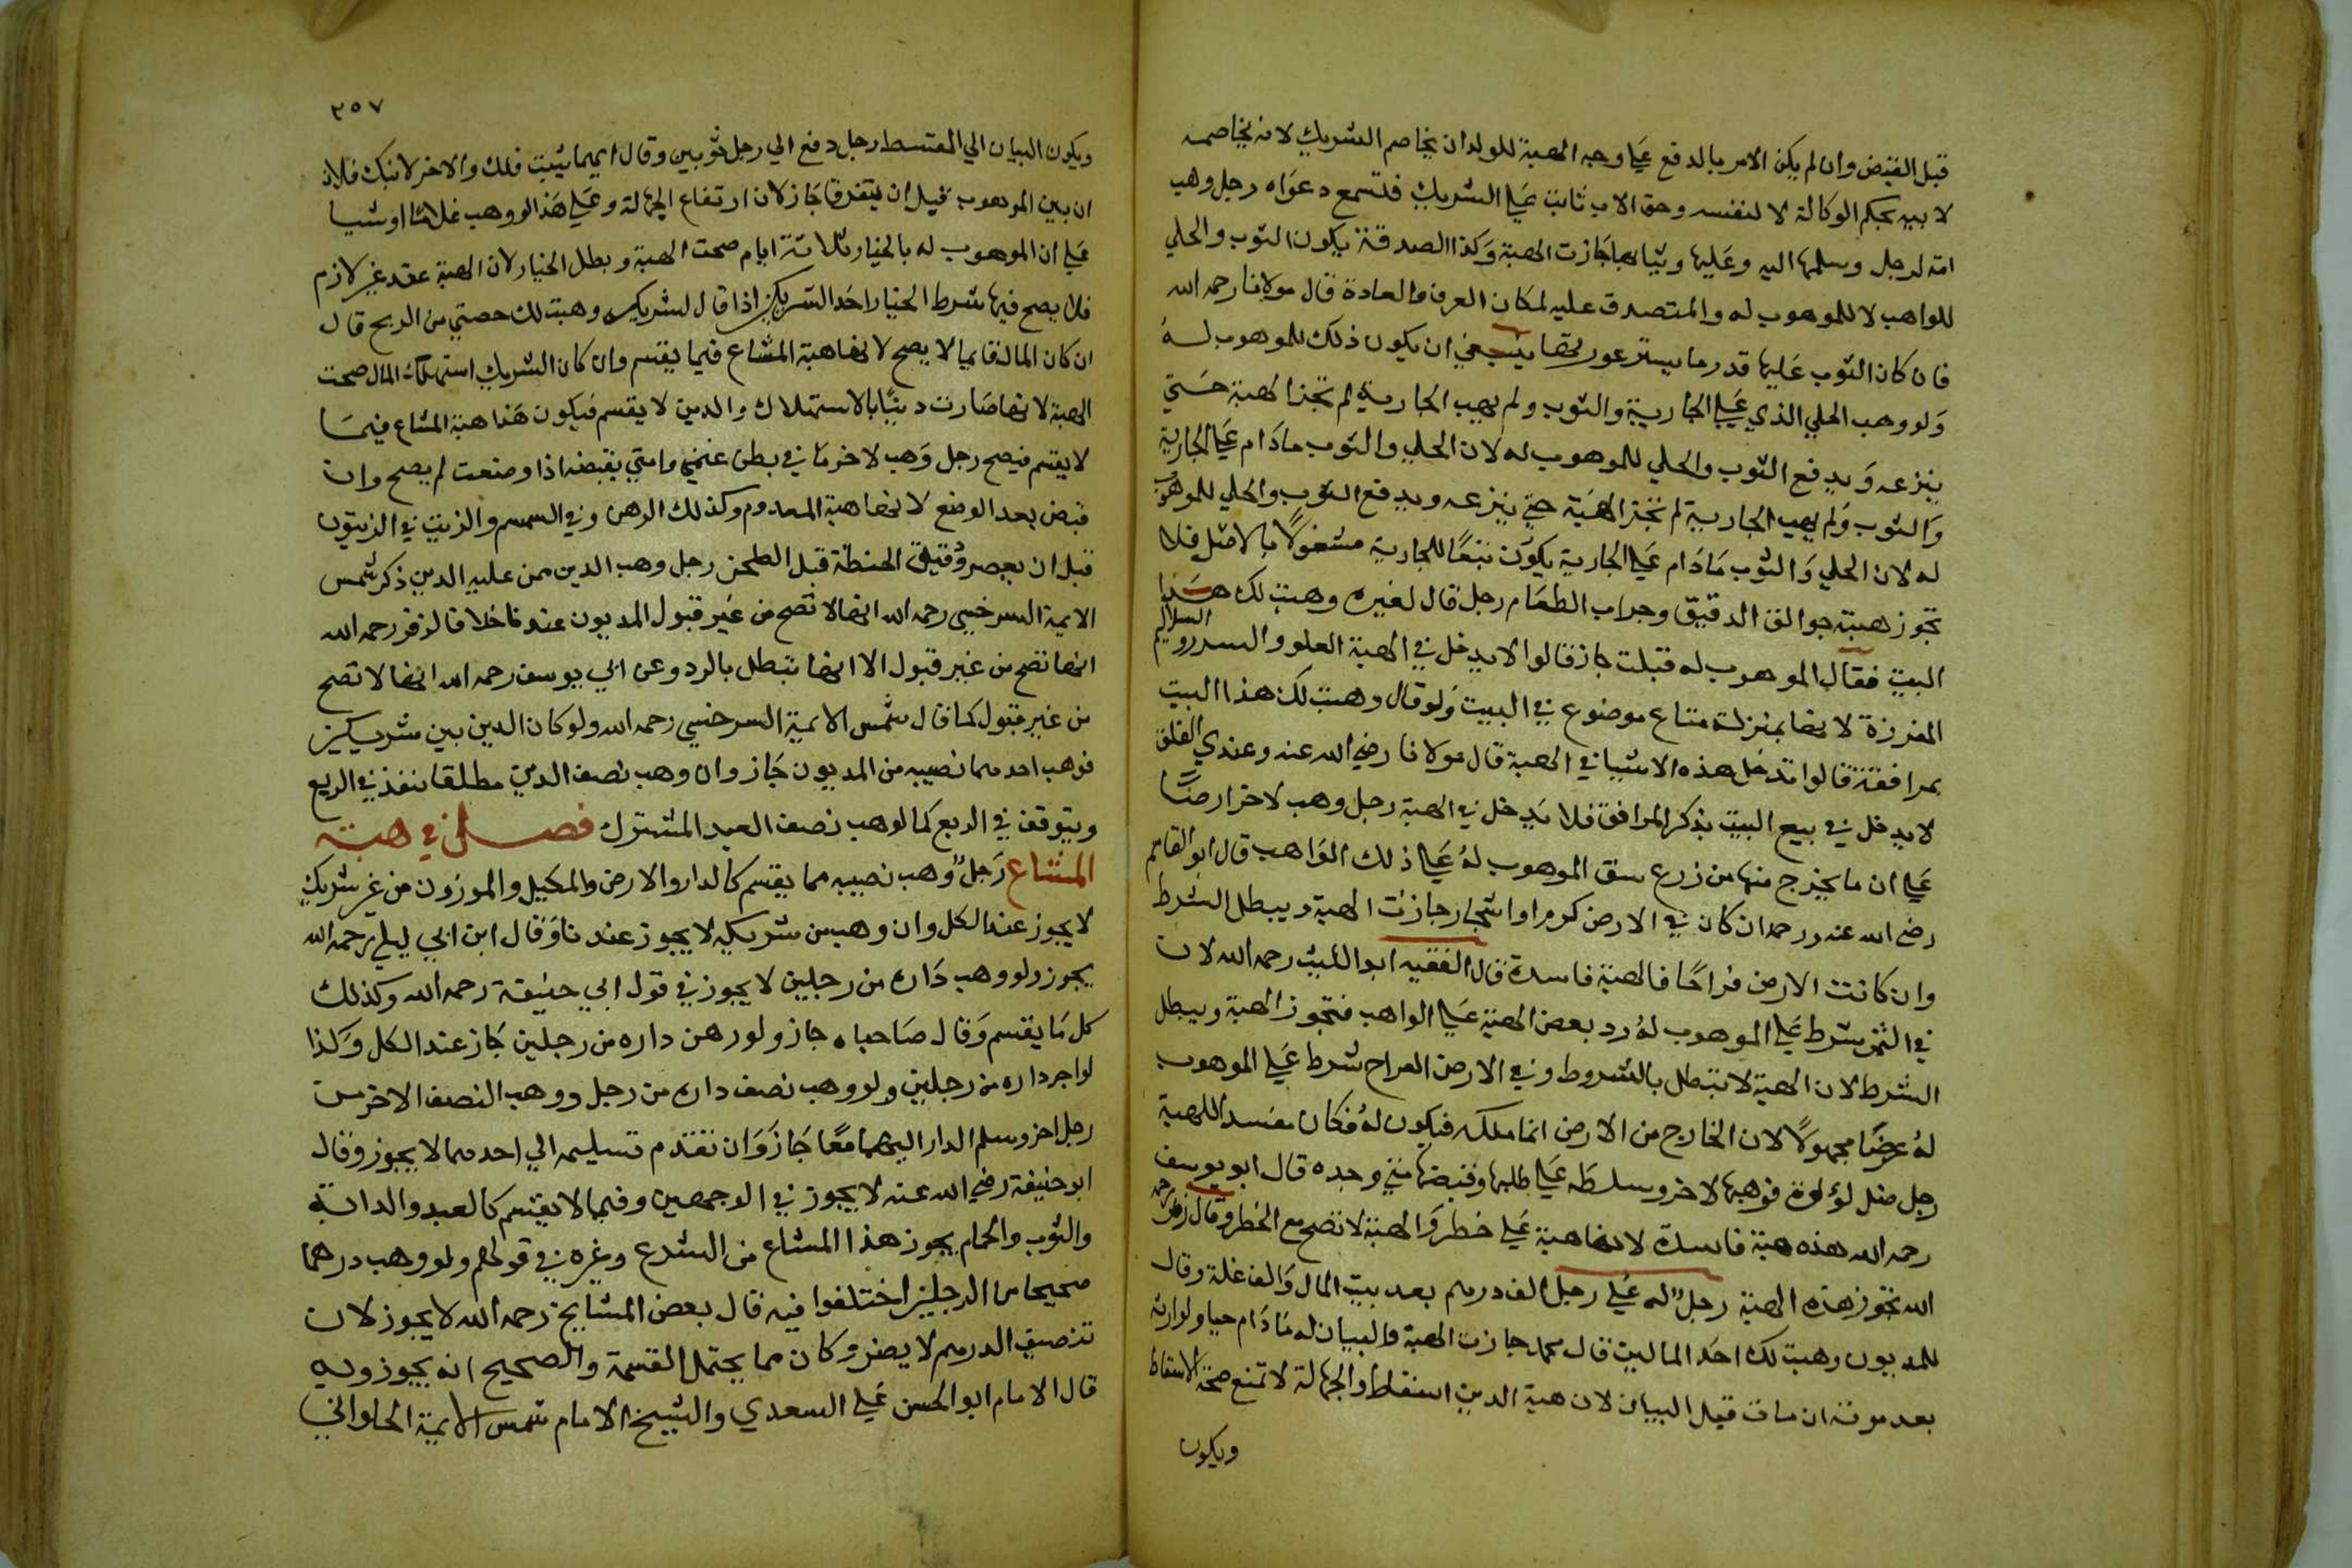 قبل القبض وان لم يكن الامر بالدفع على وجه الهبة للولد ان يخاصم الشريك لانه يخاصمه
لابيه بحكم الوكالة لا لنفسه وحق الاب ثابت على الشريك فتسمع دعواه رجل وهب
امته لرجل وسلمها اليه وعليها وثيابها جازت الهبة وكذا الصدقة يكون الثوب والحلي
للواهب لا للموهوب له والمتصدق عليه لمكان العرف والعادة قال مولانا رحمه الله
فان كان الثوب عليها قدر ما يستر عورتها ينبغي ان يكون ذلك للموهوب له
ولو وهب الحلي الذي على الجارية والثوب ولم يهب الجارية لم تجز الهبة حتي
ينزعه ويدفع الثوب والحلي للموهوب له لان الحلي والثوب مادام على الجارية
والثوب ولم يهب الجارية لم تجز الهبة حتي ينزعه ويدفع الثوب والحلي للموهوب
له لان الحلي والثوب مادام على الجارية يكون تبعًا للجارية مشغولًا بالاصل فلا
تجوز هبته جوالق الدقيق وجراب الطعام رجل قال لغيره وهبت لك هذا
البيت فقال الموهوب له قبلت جاز قالوا لا يدخل في الهبة العلو والسرر والسلاليم
المغرزة لانها بمنزلة متاع موضوع في البيت ولو قال وهبت لك هذا البيت
بمرافقه قالوا تدخل هذه الاشيا في الهبة قال مولانا رضي الله عنه وعندي الغلق
لا يدخل في بيع البيت بذكر المرافق فلا يدخل في الهبة رجل وهب لاخر ارضًا
على ان ما يخرج منها من زرع ينفق الموهوب له على ذلك الواهب قال ابو القاسم
رضي الله عنه ورحمه ان كان في الارض كرم او اشجار جازت الهبة ويبطل الشرط
وان كانت الارض قراحًا فالهبة فاسدة قال الفقيه ابو الليث رحمه الله لان
في الثمر شرط على الموهوب له رد بعض الهبة على الواهب فتجوز الهبة ويبطل
الشرط لان الهبة لا تبطل بالشروط وفي الارض القراح شرط على الموهوب
له عوضًا مجهولًا لان الخارج من الارض انما ملكه فيكون له فكان مفسدا للهبة
رجل ضل لؤلؤة فوهبها لاخر وسلطه على طلبها وقبضها متي وجده قال ابو يوسف
رحمه الله هذه هبة فاسدة لانها هبة على خطر والهبة لا تصح مع الخطر وقال زفر رحمه
الله تجوز هذه الهبة رجل له على رجل الف درهم بعد بيت المال والف غلة وقال
للمديون وهبت لك احد المالين قال محمد جازت الهبة والبيان له مادام حيا ولوارثه
بعد موته ان مات قبل البيان لان هبة الدين اسقاط والجهالة لا تمنع صحة الاسقاط
ويكون
٣٥٧
ويكون البيان الي المقتسط رجل دفع الي رجل ثوبين وقال ايهما شئت فلك والاخر لابنك فلان
ان بين الموهوب قبل ان يتفرقا جاز لان ارتفاع الجهالة وعلى هذا لو وهب غلامًا او شيا
على ان الموهوب له بالخيار ثلاثة ايام صحت الهبة وبطل الخيار لان الهبة عقد غير لازم
فلا يصح فيها شرط الخيار احد الشريكين اذا قال لشريكه وهبت لك حصتي من الربح قال
ان كان المال قايما لا يصح لانها هبة المشاع فيما يقسم وان كان الشريك استهلك المال صحت
الهبة لانها صارت دينًا بالاستهلاك والدين لا يقسم فيكون هذا هبة المشاع فيما
لا يقسم فيصح رجل وهب لاخر ما في بطن غنمي وامتي يقبضه اذا وضعت لم يصح وان
قبض بعد الوضع لانها هبة المعدوم وكذلك الدهن في السمسم والزيت في الزيتون
قبل ان يعصر ودقيق الحنطة قبل الطحن رجل وهب الدين ممن عليه الدين ذكر شمس
الايمة السرخسي رحمه الله انها لا تصح من غير قبول المديون عندنا خلافا لزفر رحمه الله
انها تصح من غير قبول الا انها تبطل بالرد وعن ابي يوسف رحمه الله انها لا تصح
من غير قبول كما قال شمس الايمة السرخسي رحمه الله ولو كان الدين بين شريكين
فوهب احدهما نصيبه من المديون جاز وان وهب نصف الدين مطلقا ينفذ في الربع
ويتوقف في الربع كما لو وهب نصف العبد المشترك فصل في هبة
المشاع رجل وهب نصيبه مما يقسم كالدار والارض والمكيل والموزون من غير شريك
لا يجوز عند الكل وان وهب من شريكه لا يجوز عندنا وقال ابن ابي ليلي رحمه الله
يجوز ولو وهب داره من رجلين لا يجوز في قول ابي حنيفة رحمه الله وكذلك
كل ما يقسم وقال صاحباه جاز ولو رهن داره من رجلين جاز عند الكل وكذا
لو اجر داره من رجلين ولو وهب نصف داره من رجل ووهب النصف الاخر من
رجل اخر وسلم الدار اليهما معًا جاز وان تقدم تسليمه الي احدهما لا يجوز وقال
ابو حنيفة رضي الله عنه لا يجوز في الوجهين وفيما لا يقسم كالعبد والدابة
والثوب والحمام يجوز هذا المشاع من الشرع وغيره في قولهم ولو وهب درهما
صحيحا من الرجلين اختلفوا فيه قال بعض المشايخ رحمه الله لا يجوز لان
تنصيف الدرهم لا يضر وكان مما يحتمل القسمة والصحيح انه يجوز وبه
قال الامام ابو الحسن على السعدي والشيخ الامام شمس الايمة الحلواني